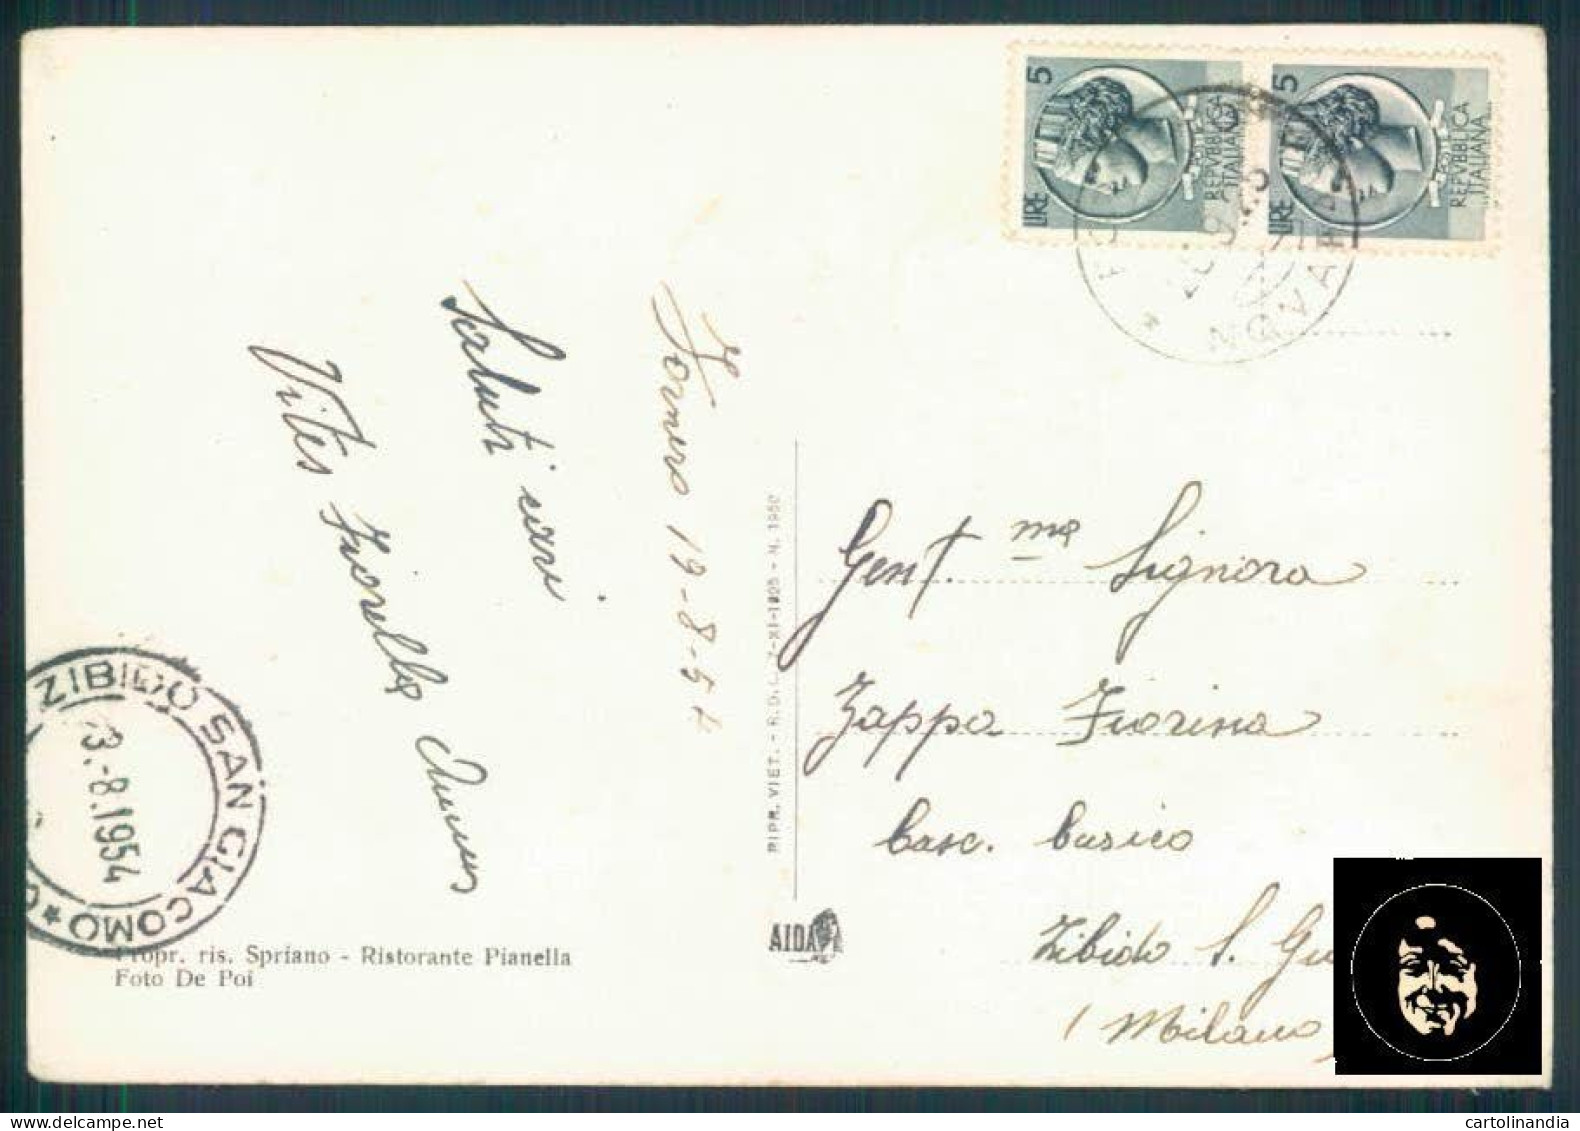 LIRE 5
POSTE
REPVBBLICA
ITALIANA
LIRE 5
POSTE
REPVBBLICA
ITALIANA
NOVARA
Formero 19-8-54
Saluti cari
Fiorella
Gent.ma Signora
Zappa Fiorina
Casc. Cusico
Zibido S. Gi
(Milano)
RIPR. VIET. - R.D. 7-XI-1925 - N. 1950
AIDA
ZIBIDO SAN GIACOMO
3.-8.1954
Propr. ris. Spriano - Ristorante Pianella
Foto De Poi
cartolinandia